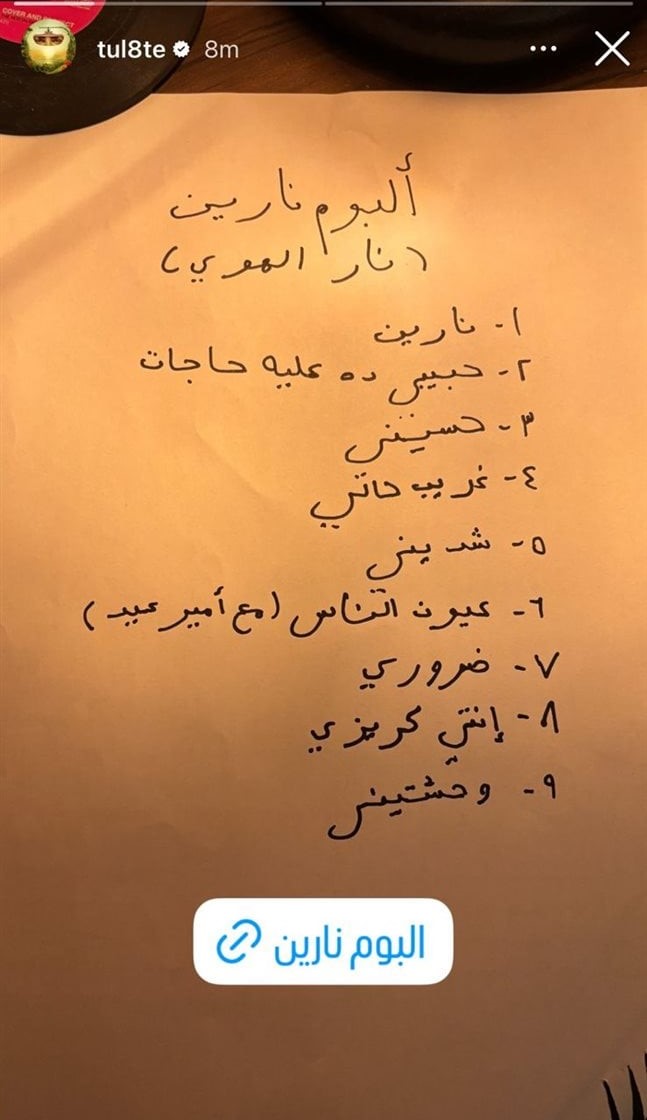 COVER AND
tul8te 8m
ألبوم نارين
(نار الهوي)
١- نارين
٢- حبيبي ده عليه حاجات
٣- حسيني
٤- غريب حالي
٥- شديني
٦- عيون الناس (مع أمير عيد)
٧- ضروري
٨- إنتي كريزي
٩- وحشتيني
البوم نارين